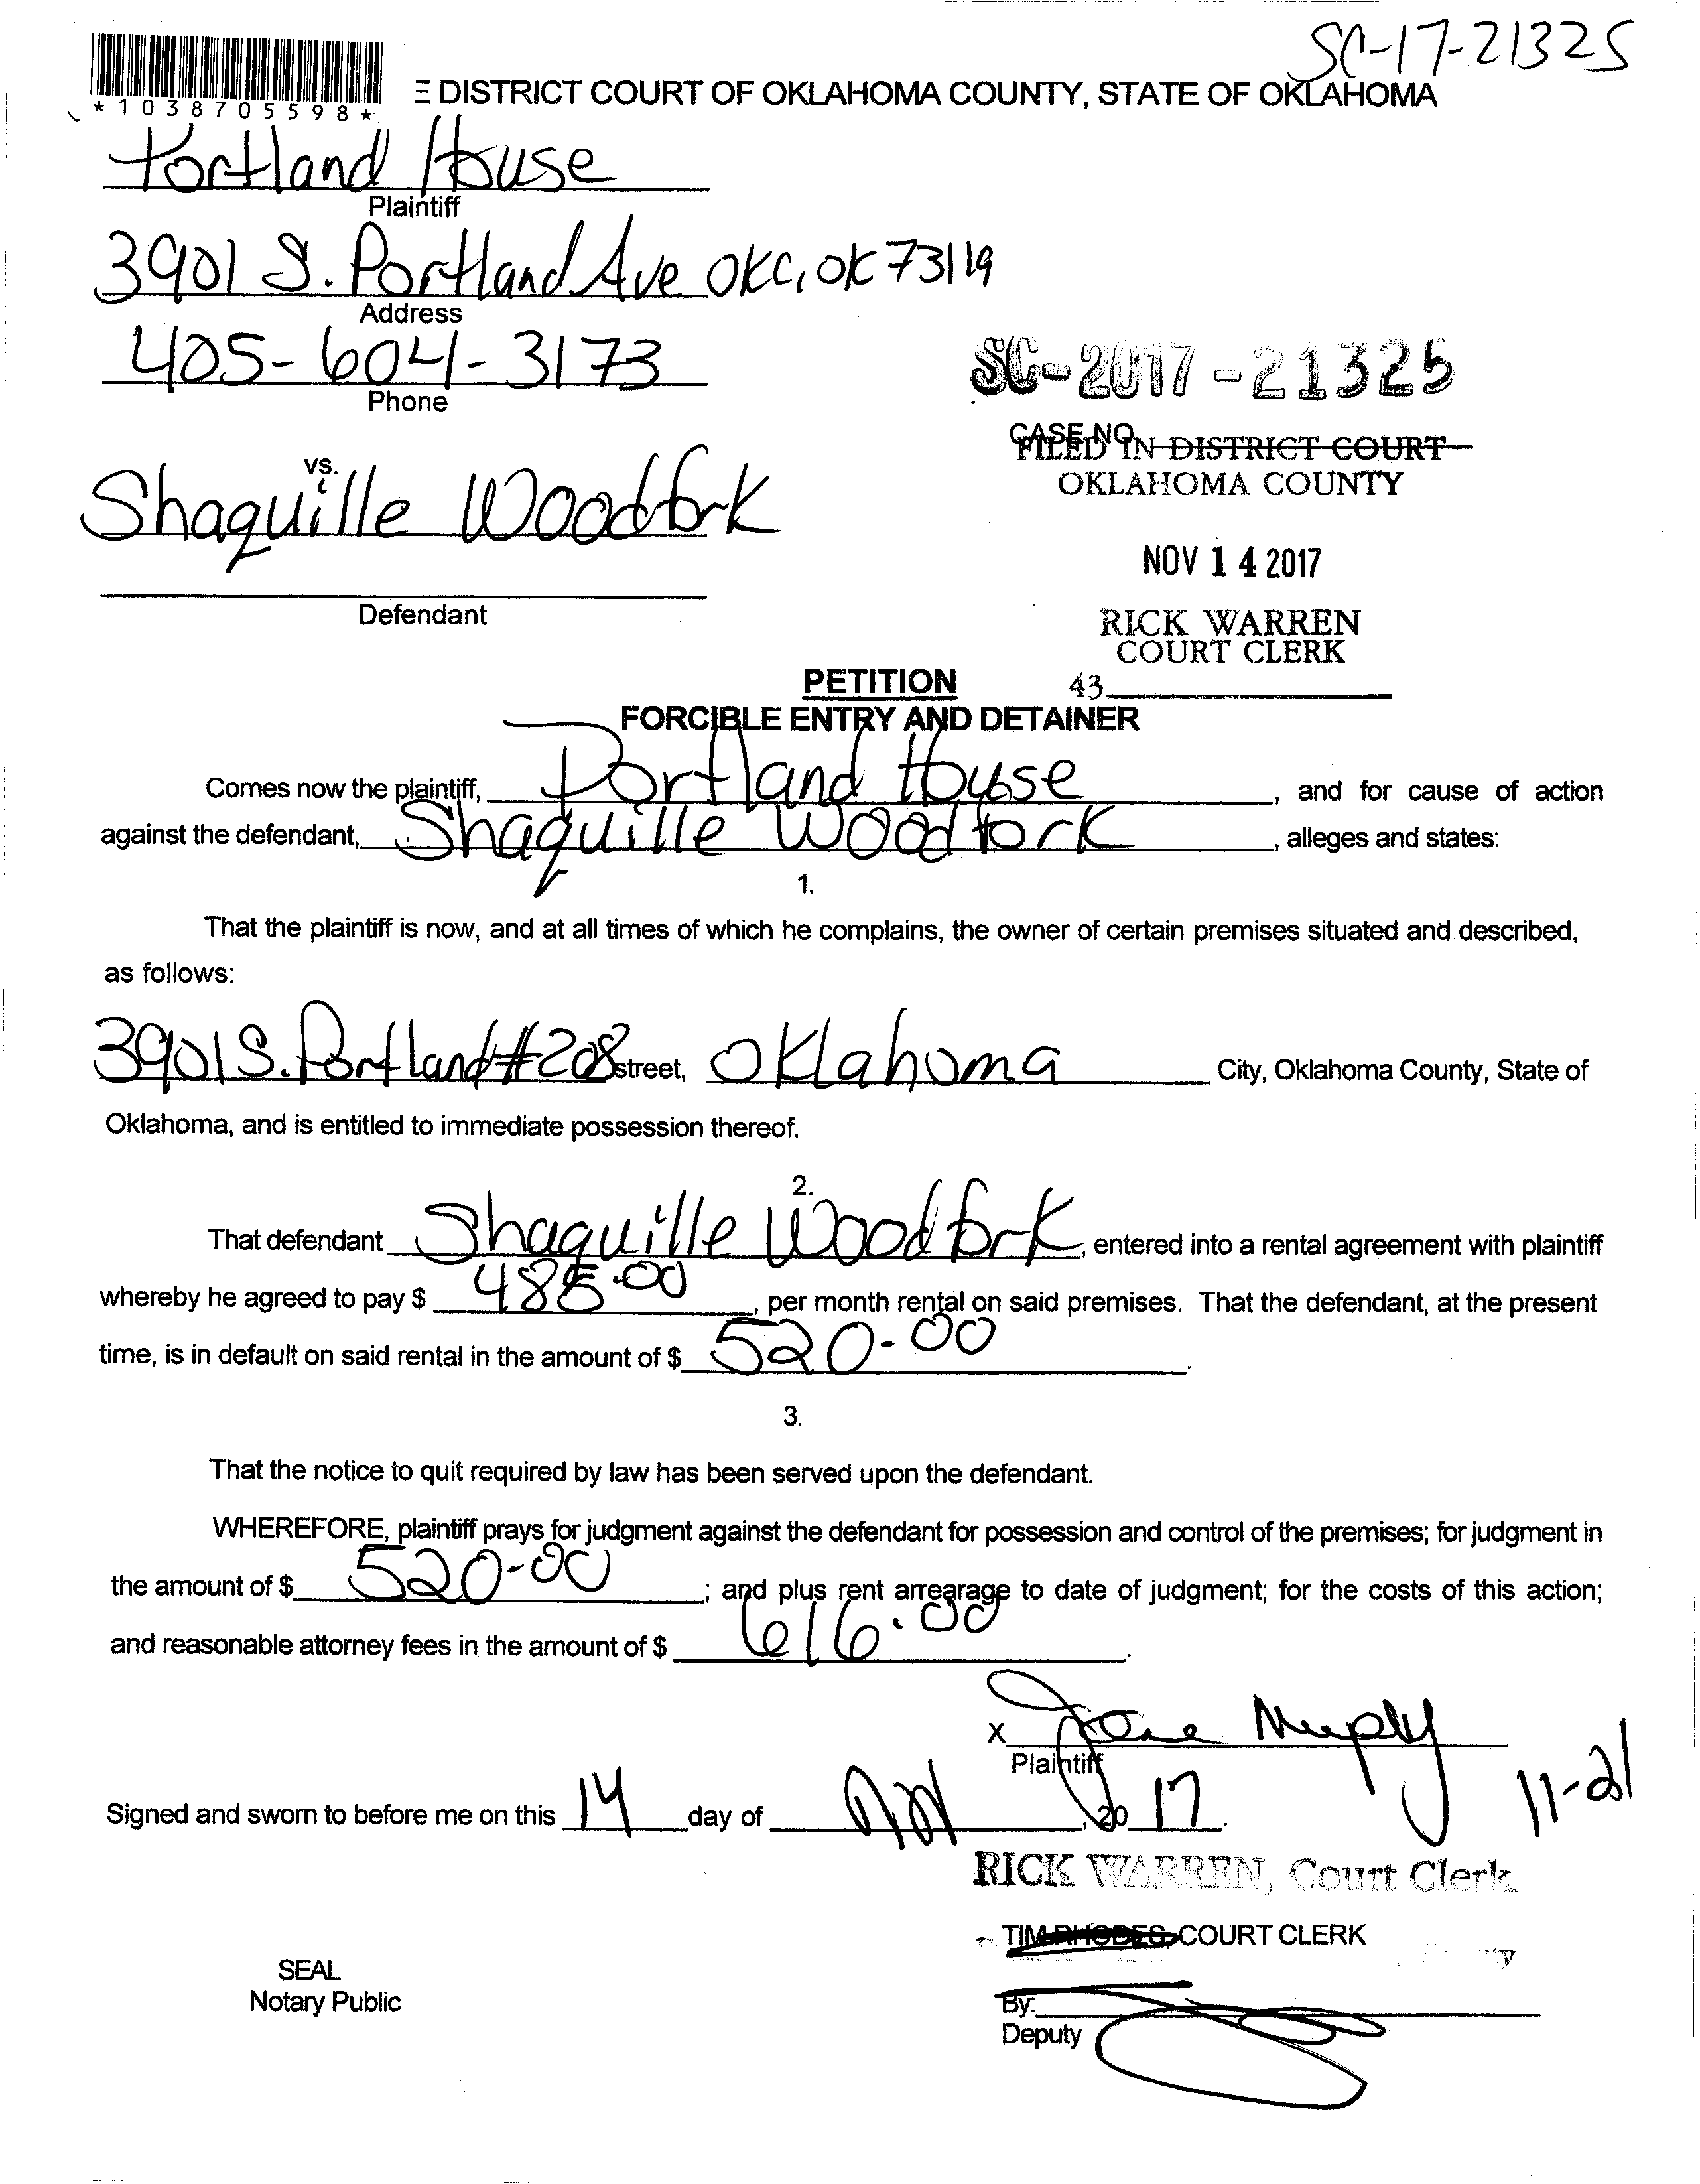 SC-17-21325
*1038705598*
DISTRICT COURT OF OKLAHOMA COUNTY, STATE OF OKLAHOMA
Portland House
Plaintiff
3901 S. Portland Ave OKC, OK 73119
Address
405-604-3173
Phone
SC-2017-21325
CASE NO.
FILED IN DISTRICT COURT
OKLAHOMA COUNTY
vs.
Shaquille Woodfork
NOV 14 2017
Defendant
RICK WARREN
COURT CLERK
43
PETITION
FORCIBLE ENTRY AND DETAINER
Comes now the plaintiff, Portland House, and for cause of action
against the defendant, Shaquille Woodfork, alleges and states:
1.
That the plaintiff is now, and at all times of which he complains, the owner of certain premises situated and described,
as follows:
3901 S. Portland #208 street, Oklahoma City, Oklahoma County, State of
Oklahoma, and is entitled to immediate possession thereof.
2.
That defendant Shaquille Woodfork, entered into a rental agreement with plaintiff
whereby he agreed to pay $ 485.00, per month rental on said premises. That the defendant, at the present
time, is in default on said rental in the amount of $ 520.00.
3.
That the notice to quit required by law has been served upon the defendant.
WHEREFORE, plaintiff prays for judgment against the defendant for possession and control of the premises; for judgment in
the amount of $ 520.00; and plus rent arrearage to date of judgment; for the costs of this action;
and reasonable attorney fees in the amount of $ 616.00.
X
Plaintiff
11-21
Signed and sworn to before me on this 14 day of Nov, 20 17.
RICK WARREN, Court Clerk
TIM RHODES, COURT CLERK
SEAL
Notary Public
By:
Deputy